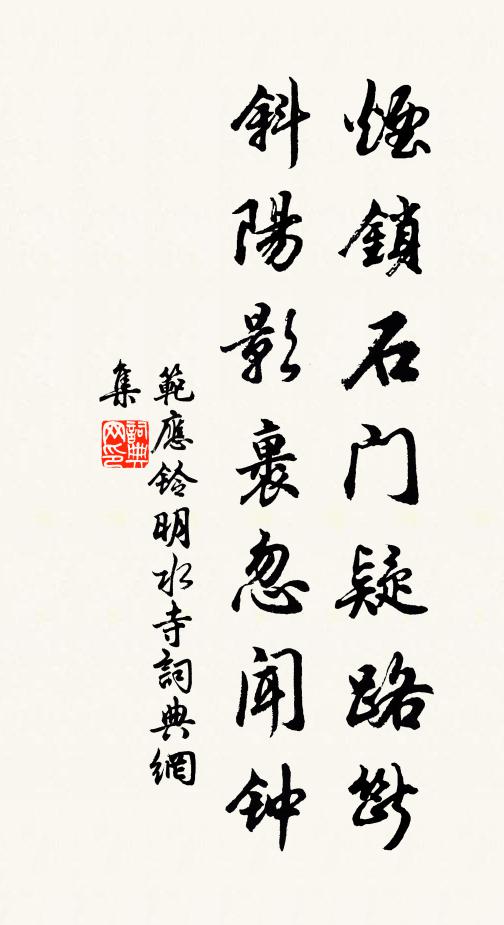 煙鎖石门疑路斷
斜陽影裹忽闻钟
範應鈴明水寺詞典網
集
詞典网印